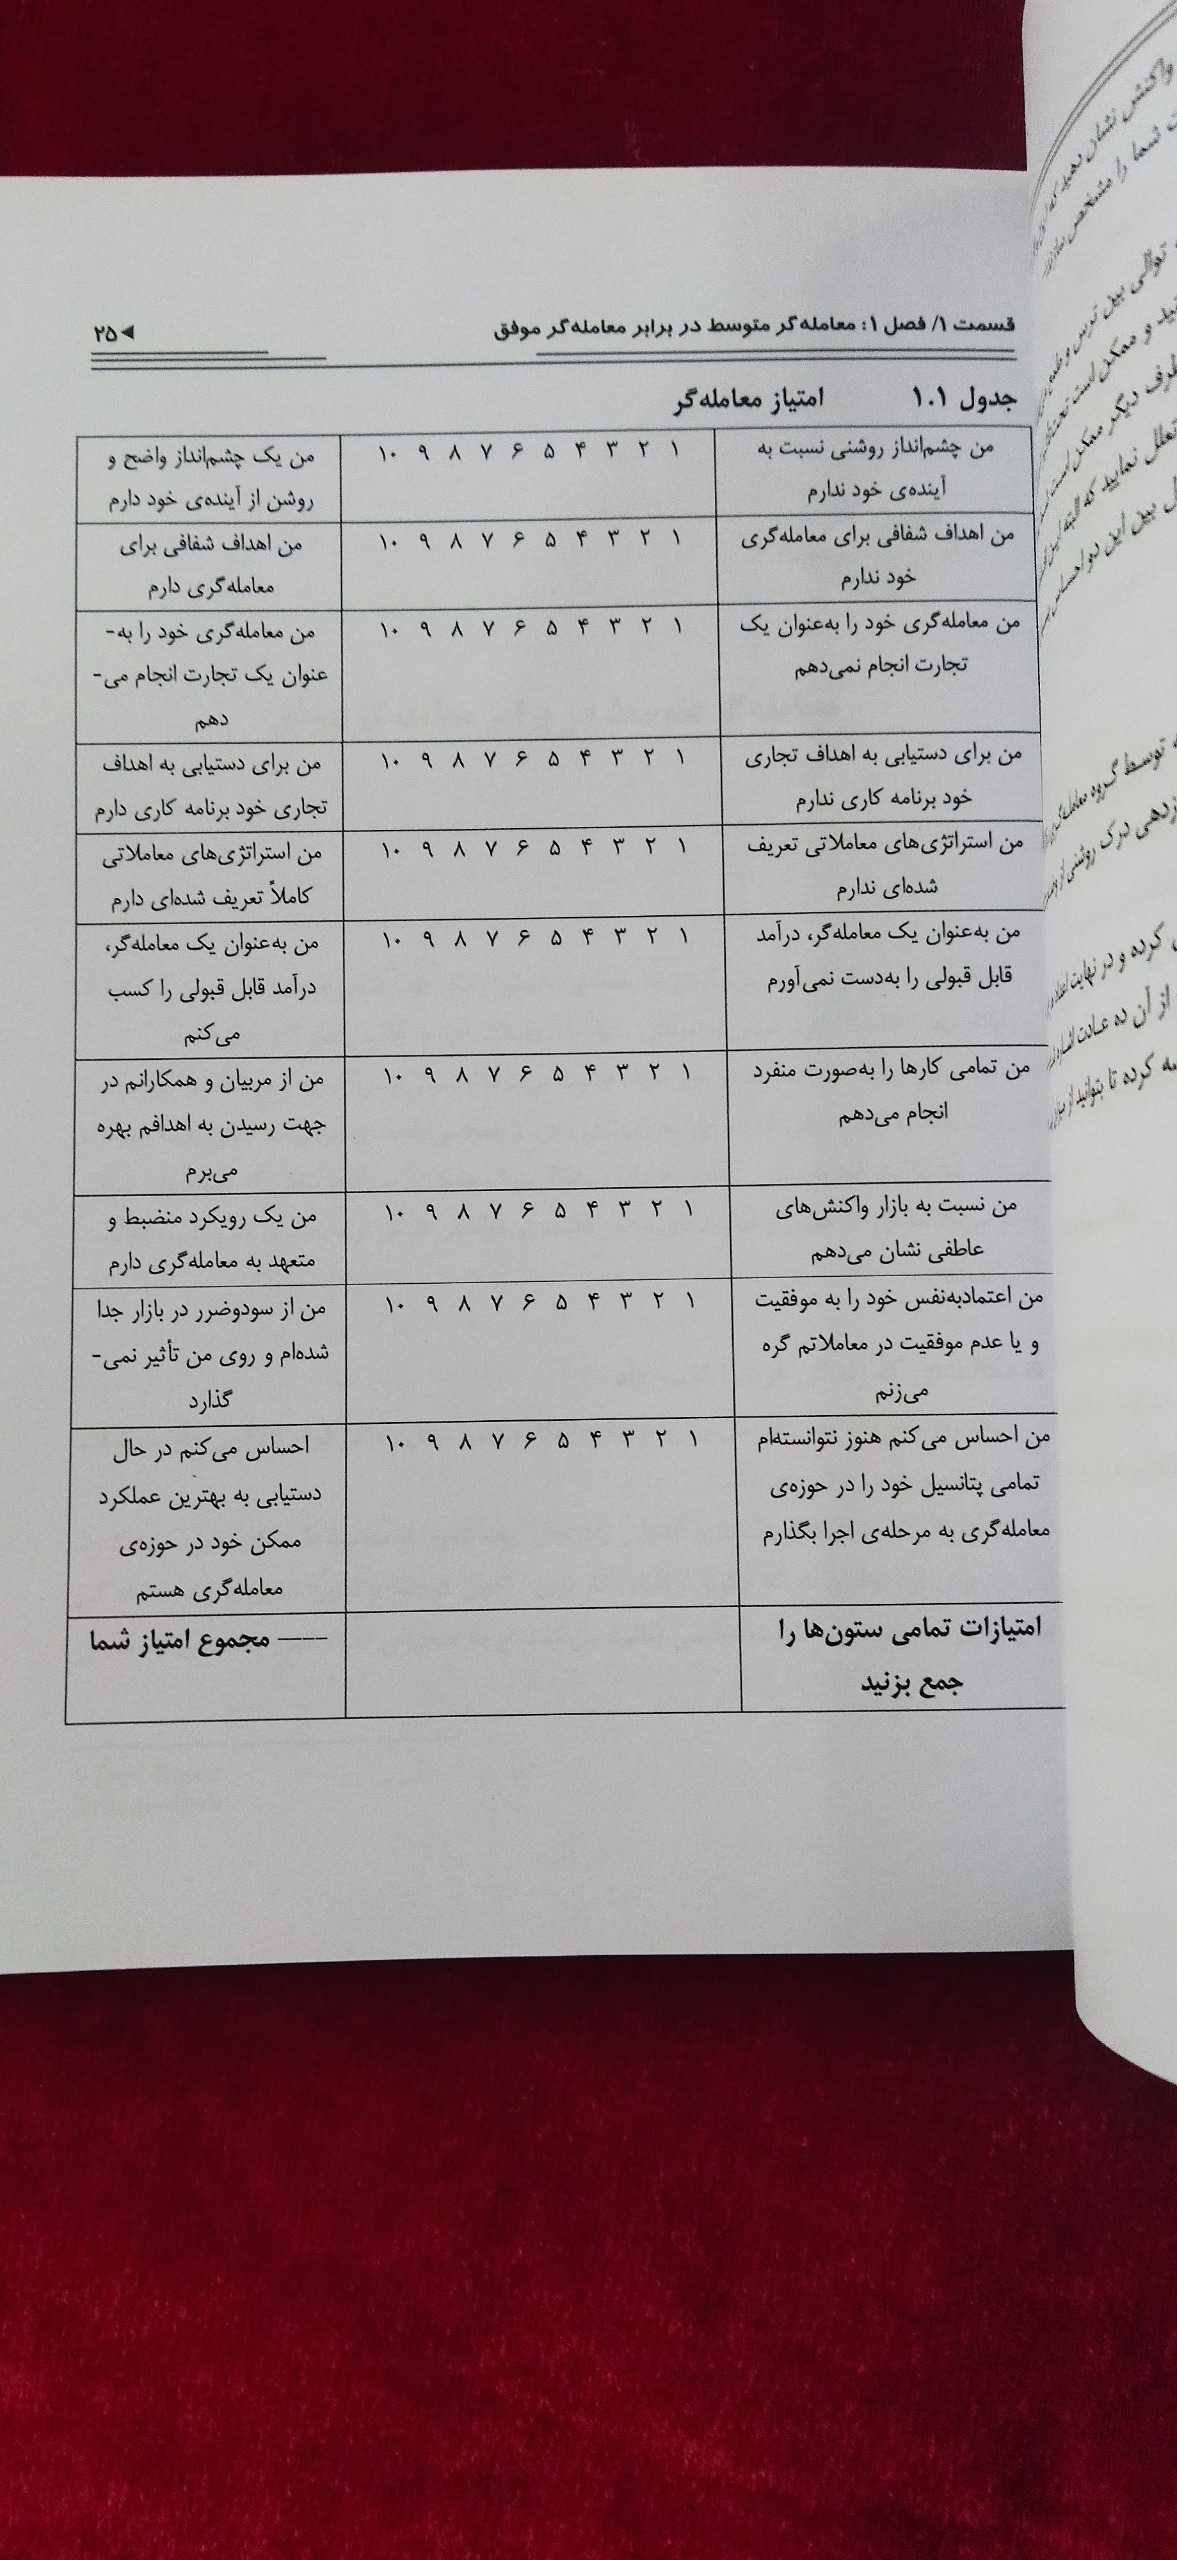 قسمت ۱/ فصل ۱: معامله‌گر متوسط در برابر معامله‌گر موفق
◄۲۵
جدول ۱.۱ امتیاز معامله‌گر
من چشم‌انداز روشنی نسبت به
آینده‌ی خود ندارم
۱ ۲ ۳ ۴ ۵ ۶ ۷ ۸ ۹ ۱۰
من یک چشم‌انداز واضح و
روشن از آینده‌ی خود دارم
من اهداف شفافی برای معامله‌گری
خود ندارم
۱ ۲ ۳ ۴ ۵ ۶ ۷ ۸ ۹ ۱۰
من اهداف شفافی برای
معامله‌گری دارم
من معامله‌گری خود را به‌عنوان یک
تجارت انجام نمی‌دهم
۱ ۲ ۳ ۴ ۵ ۶ ۷ ۸ ۹ ۱۰
من معامله‌گری خود را به-
عنوان یک تجارت انجام می-
دهم
من برای دستیابی به اهداف تجاری
خود برنامه کاری ندارم
۱ ۲ ۳ ۴ ۵ ۶ ۷ ۸ ۹ ۱۰
من برای دستیابی به اهداف
تجاری خود برنامه کاری دارم
من استراتژی‌های معاملاتی تعریف
شده‌ای ندارم
۱ ۲ ۳ ۴ ۵ ۶ ۷ ۸ ۹ ۱۰
من استراتژی‌های معاملاتی
کاملاً تعریف شده‌ای دارم
من به‌عنوان یک معامله‌گر، درآمد
قابل قبولی را به‌دست نمی‌آورم
۱ ۲ ۳ ۴ ۵ ۶ ۷ ۸ ۹ ۱۰
من به‌عنوان یک معامله‌گر،
درآمد قابل قبولی را کسب
می‌کنم
من تمامی کارها را به‌صورت منفرد
انجام می‌دهم
۱ ۲ ۳ ۴ ۵ ۶ ۷ ۸ ۹ ۱۰
من از مربیان و همکارانم در
جهت رسیدن به اهدافم بهره
می‌برم
من نسبت به بازار واکنش‌های
عاطفی نشان می‌دهم
۱ ۲ ۳ ۴ ۵ ۶ ۷ ۸ ۹ ۱۰
من یک رویکرد منضبط و
متعهد به معامله‌گری دارم
من اعتمادبه‌نفس خود را به موفقیت
و یا عدم موفقیت در معاملاتم گره
می‌زنم
۱ ۲ ۳ ۴ ۵ ۶ ۷ ۸ ۹ ۱۰
من از سودوضرر در بازار جدا
شده‌ام و روی من تأثیر نمی-
گذارد
من احساس می‌کنم هنوز نتوانسته‌ام
تمامی پتانسیل خود را در حوزه‌ی
معامله‌گری به مرحله‌ی اجرا بگذارم
۱ ۲ ۳ ۴ ۵ ۶ ۷ ۸ ۹ ۱۰
احساس می‌کنم در حال
دستیابی به بهترین عملکرد
ممکن خود در حوزه‌ی
معامله‌گری هستم
امتیازات تمامی ستون‌ها را
جمع بزنید
—— مجموع امتیاز شما
واکنش نشان دهید که
شما را مشخص
توالی بین ترس و طمع
و ممکن است
طرف دیگر ممکن است
تعلل نمایید که البته این
بین این دو احساس
توسط گروه معامله‌گری
درک روشنی از
کرده و در نهایت
از آن ده عادت
کرده تا بتوانید از